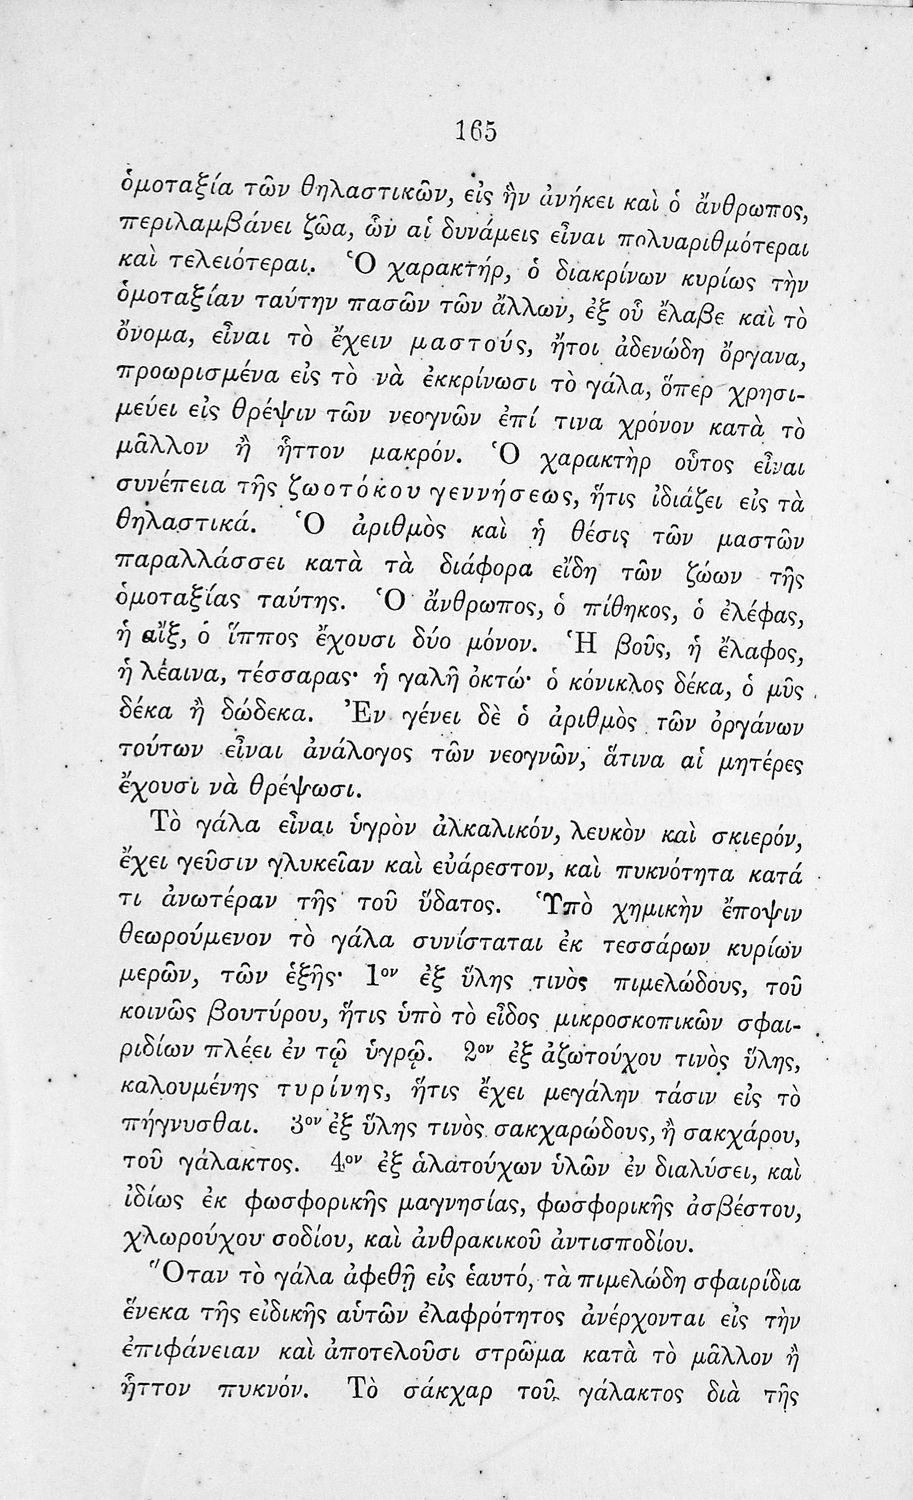 165
ὁμοταξία τῶν θηλαστικῶν, εἰς ἣν ἀνήκει καὶ ὁ ἄνθρωπος,
περιλαμβάνει ζῶα, ὧν αἱ δυνάμεις εἶναι πολυαριθμότεραι
καὶ τελειότεραι. Ὁ χαρακτήρ, ὁ διακρίνων κυρίως τὴν
ὁμοταξίαν ταύτην πασῶν τῶν ἄλλων, ἐξ οὗ ἔλαβε καὶ τὸ
ὄνομα, εἶναι τὸ ἔχειν μαστούς, ἤτοι ἀδενώδη ὄργανα,
προωρισμένα εἰς τὸ νὰ ἐκκρίνωσι τὸ γάλα, ὅπερ χρησι-
μεύει εἰς θρέψιν τῶν νεογνῶν ἐπί τινα χρόνον κατὰ τὸ
μᾶλλον ἢ ἧττον μακρόν. Ὁ χαρακτὴρ οὗτος εἶναι
συνέπεια τῆς ζωοτόκου γεννήσεως, ἥτις ἰδιάζει εἰς τὰ
θηλαστικά. Ὁ ἀριθμὸς καὶ ἡ θέσις τῶν μαστῶν
παραλλάσσει κατὰ τὰ διάφορα εἴδη τῶν ζώων τῆς
ὁμοταξίας ταύτης. Ὁ ἄνθρωπος, ὁ πίθηκος, ὁ ἐλέφας,
ἡ αἴξ, ὁ ἵππος ἔχουσι δύο μόνον. Ἡ βοῦς, ἡ ἔλαφος,
ἡ λέαινα, τέσσαρας· ἡ γαλῆ ὀκτώ· ὁ κόνικλος δέκα, ὁ μῦς
δέκα ἢ δώδεκα. Ἐν γένει δὲ ὁ ἀριθμὸς τῶν ὀργάνων
τούτων εἶναι ἀνάλογος τῶν νεογνῶν, ἅτινα αἱ μητέρες
ἔχουσι νὰ θρέψωσι.
Τὸ γάλα εἶναι ὑγρὸν ἀλκαλικόν, λευκὸν καὶ σκιερόν,
ἔχει γεῦσιν γλυκεῖαν καὶ εὐάρεστον, καὶ πυκνότητα κατά
τι ἀνωτέραν τῆς τοῦ ὕδατος. Ὑπὸ χημικὴν ἔποψιν
θεωρούμενον τὸ γάλα συνίσταται ἐκ τεσσάρων κυρίων
μερῶν, τῶν ἑξῆς· 1ον ἐξ ὕλης τινὸς πιμελώδους, τοῦ
κοινῶς βουτύρου, ἥτις ὑπὸ τὸ εἶδος μικροσκοπικῶν σφαι-
ριδίων πλέει ἐν τῷ ὑγρῷ. 2ον ἐξ ἀζωτούχου τινὸς ὕλης,
καλουμένης τυρίνης, ἥτις ἔχει μεγάλην τάσιν εἰς τὸ
πήγνυσθαι. 3ον ἐξ ὕλης τινὸς σακχαρώδους, ἢ σακχάρου,
τοῦ γάλακτος. 4ον ἐξ ἁλατούχων ὑλῶν ἐν διαλύσει, καὶ
ἰδίως ἐκ φωσφορικῆς μαγνησίας, φωσφορικῆς ἀσβέστου,
χλωρούχου σοδίου, καὶ ἀνθρακικοῦ ἀντισποδίου.
Ὅταν τὸ γάλα ἀφεθῇ εἰς ἑαυτό, τὰ πιμελώδη σφαιρίδια
ἕνεκα τῆς εἰδικῆς αὑτῶν ἐλαφρότητος ἀνέρχονται εἰς τὴν
ἐπιφάνειαν καὶ ἀποτελοῦσι στρῶμα κατὰ τὸ μᾶλλον ἢ
ἧττον πυκνόν. Τὸ σάκχαρ τοῦ γάλακτος διὰ τῆς